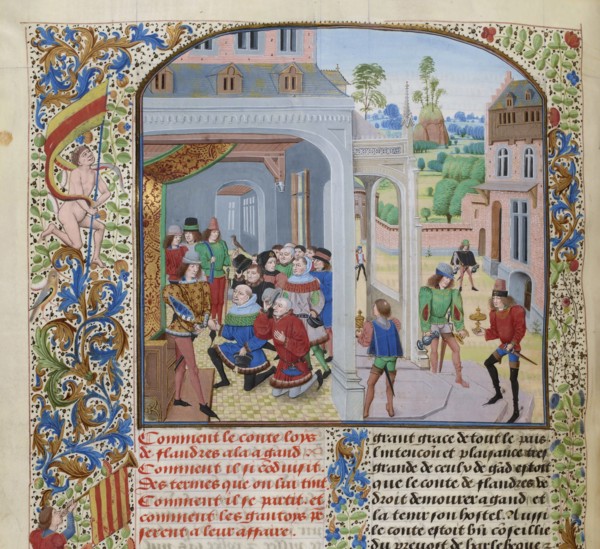 Comment le conte loys
de flandres ala a gand
Comment il se cōduisit
Des termes que on lui tint
Comment il se partit. et
comment les gantois po
serent a leur affaire.
grant grace de tout le pais
lintencion et plaisance tres
grande de ceulx de gād estoit
que le conte de flandres de
droit demourer a gand et
la tenir son hostel. Aussi
le conte estoit biē cōseillie
du prevost de harlebeque